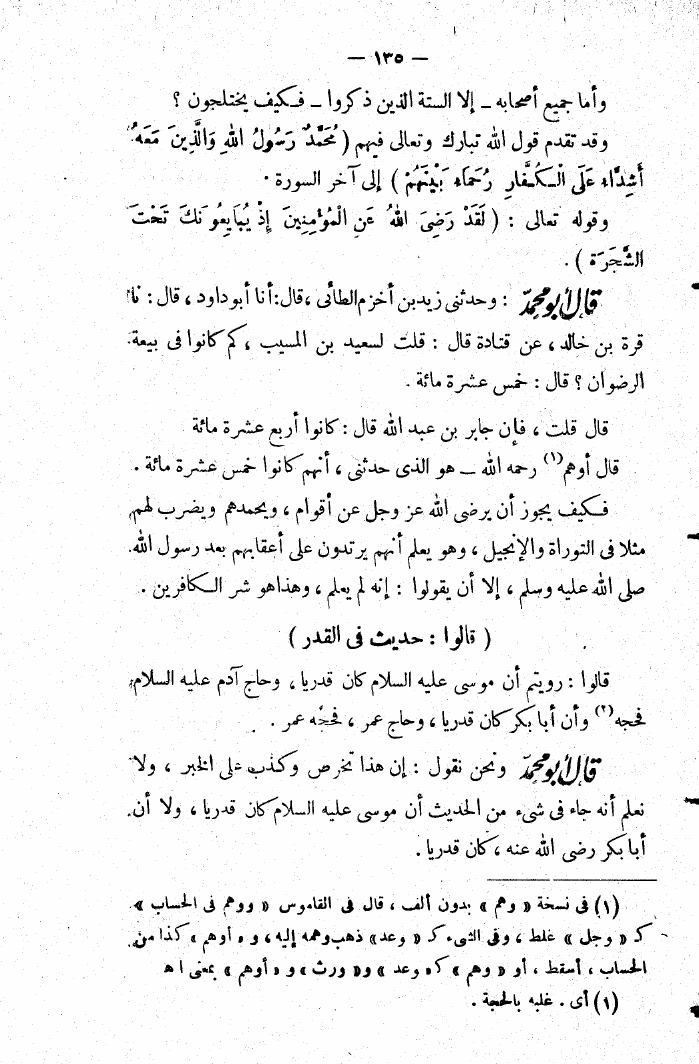 — ١٣٥ —
وأما جميع أصحابه – إلا الستة الذين ذكروا – فكيف يختلجون ؟
وقد تقدم قول الله تبارك وتعالى فيهم ( مُحَمَّدٌ رَسُولُ اللهِ وَالَّذِينَ مَعَهُ
أَشِدَّاءِ عَلَى الْكُفَّارِ رُحَمَاءِ بَيْنَهُمْ ) إلى آخر السورة .
وقوله تعالى : ( لَقَدْ رَضِىَ اللهُ عَنِ الْمُؤْمِنِينَ إِذْ يُبَايِعُونَكَ تَحْتَ
الشَّجَرَة ) .
قال أبو محمد : وحدثنى زيد بن أخزم الطائى ، قال : أنا أبو داود ، قال : نا
قرة بن خالد ، عن قتادة قال : قلت لسعيد بن المسيب ، كم كانوا فى بيعة
الرضوان ؟ قال : خمس عشرة مائة .
قال قلت ، فإن جابر بن عبد الله قال : كانوا أربع عشرة مائة
قال أوهم (١) رحمه الله – هو الذى حدثنى ، أنهم كانوا خمس عشرة مائة .
فكيف يجوز أن يرضى الله عز وجل عن أقوام ، ويحمدهم ويضرب لهم
مثلا فى التوراة والإنجيل ، وهو يعلم أنهم يرتدون على أعقابهم بعد رسول الله
صلى الله عليه وسلم ، إلا أن يقولوا : إنه لم يعلم ، وهذا هو شر الكافرين .
( قالوا : حديث فى القدر )
قالوا : رويتم أن موسى عليه السلام كان قدريا ، وحاج آدم عليه السلام
فحجه (٢) وأن أبا بكر كان قدريا ، وحاج عمر ، فحجه عمر .
قال أبو محمد ونحن نقول : إن هذا تخرص وكذب على الخبر ، ولا
نعلم أنه جاء فى شىء من الحديث أن موسى عليه السلام كان قدريا ، ولا أن
أبا بكر رضى الله عنه ، كان قدريا .
(١) فى نسخة « وهم » بدون ألف ، قال فى القاموس « ووهم فى الحساب »
كـ « وجل » غلط ، وفى الشىء كـ « وعد » ذهب وهمه إليه ، و « أوهم » كذا من
الحساب ، أسقط ، أو « وهم » كـ « وعد » و« ورث » و « أوهم » بمعنى اهـ
(١) أى . غلبه بالحجة .